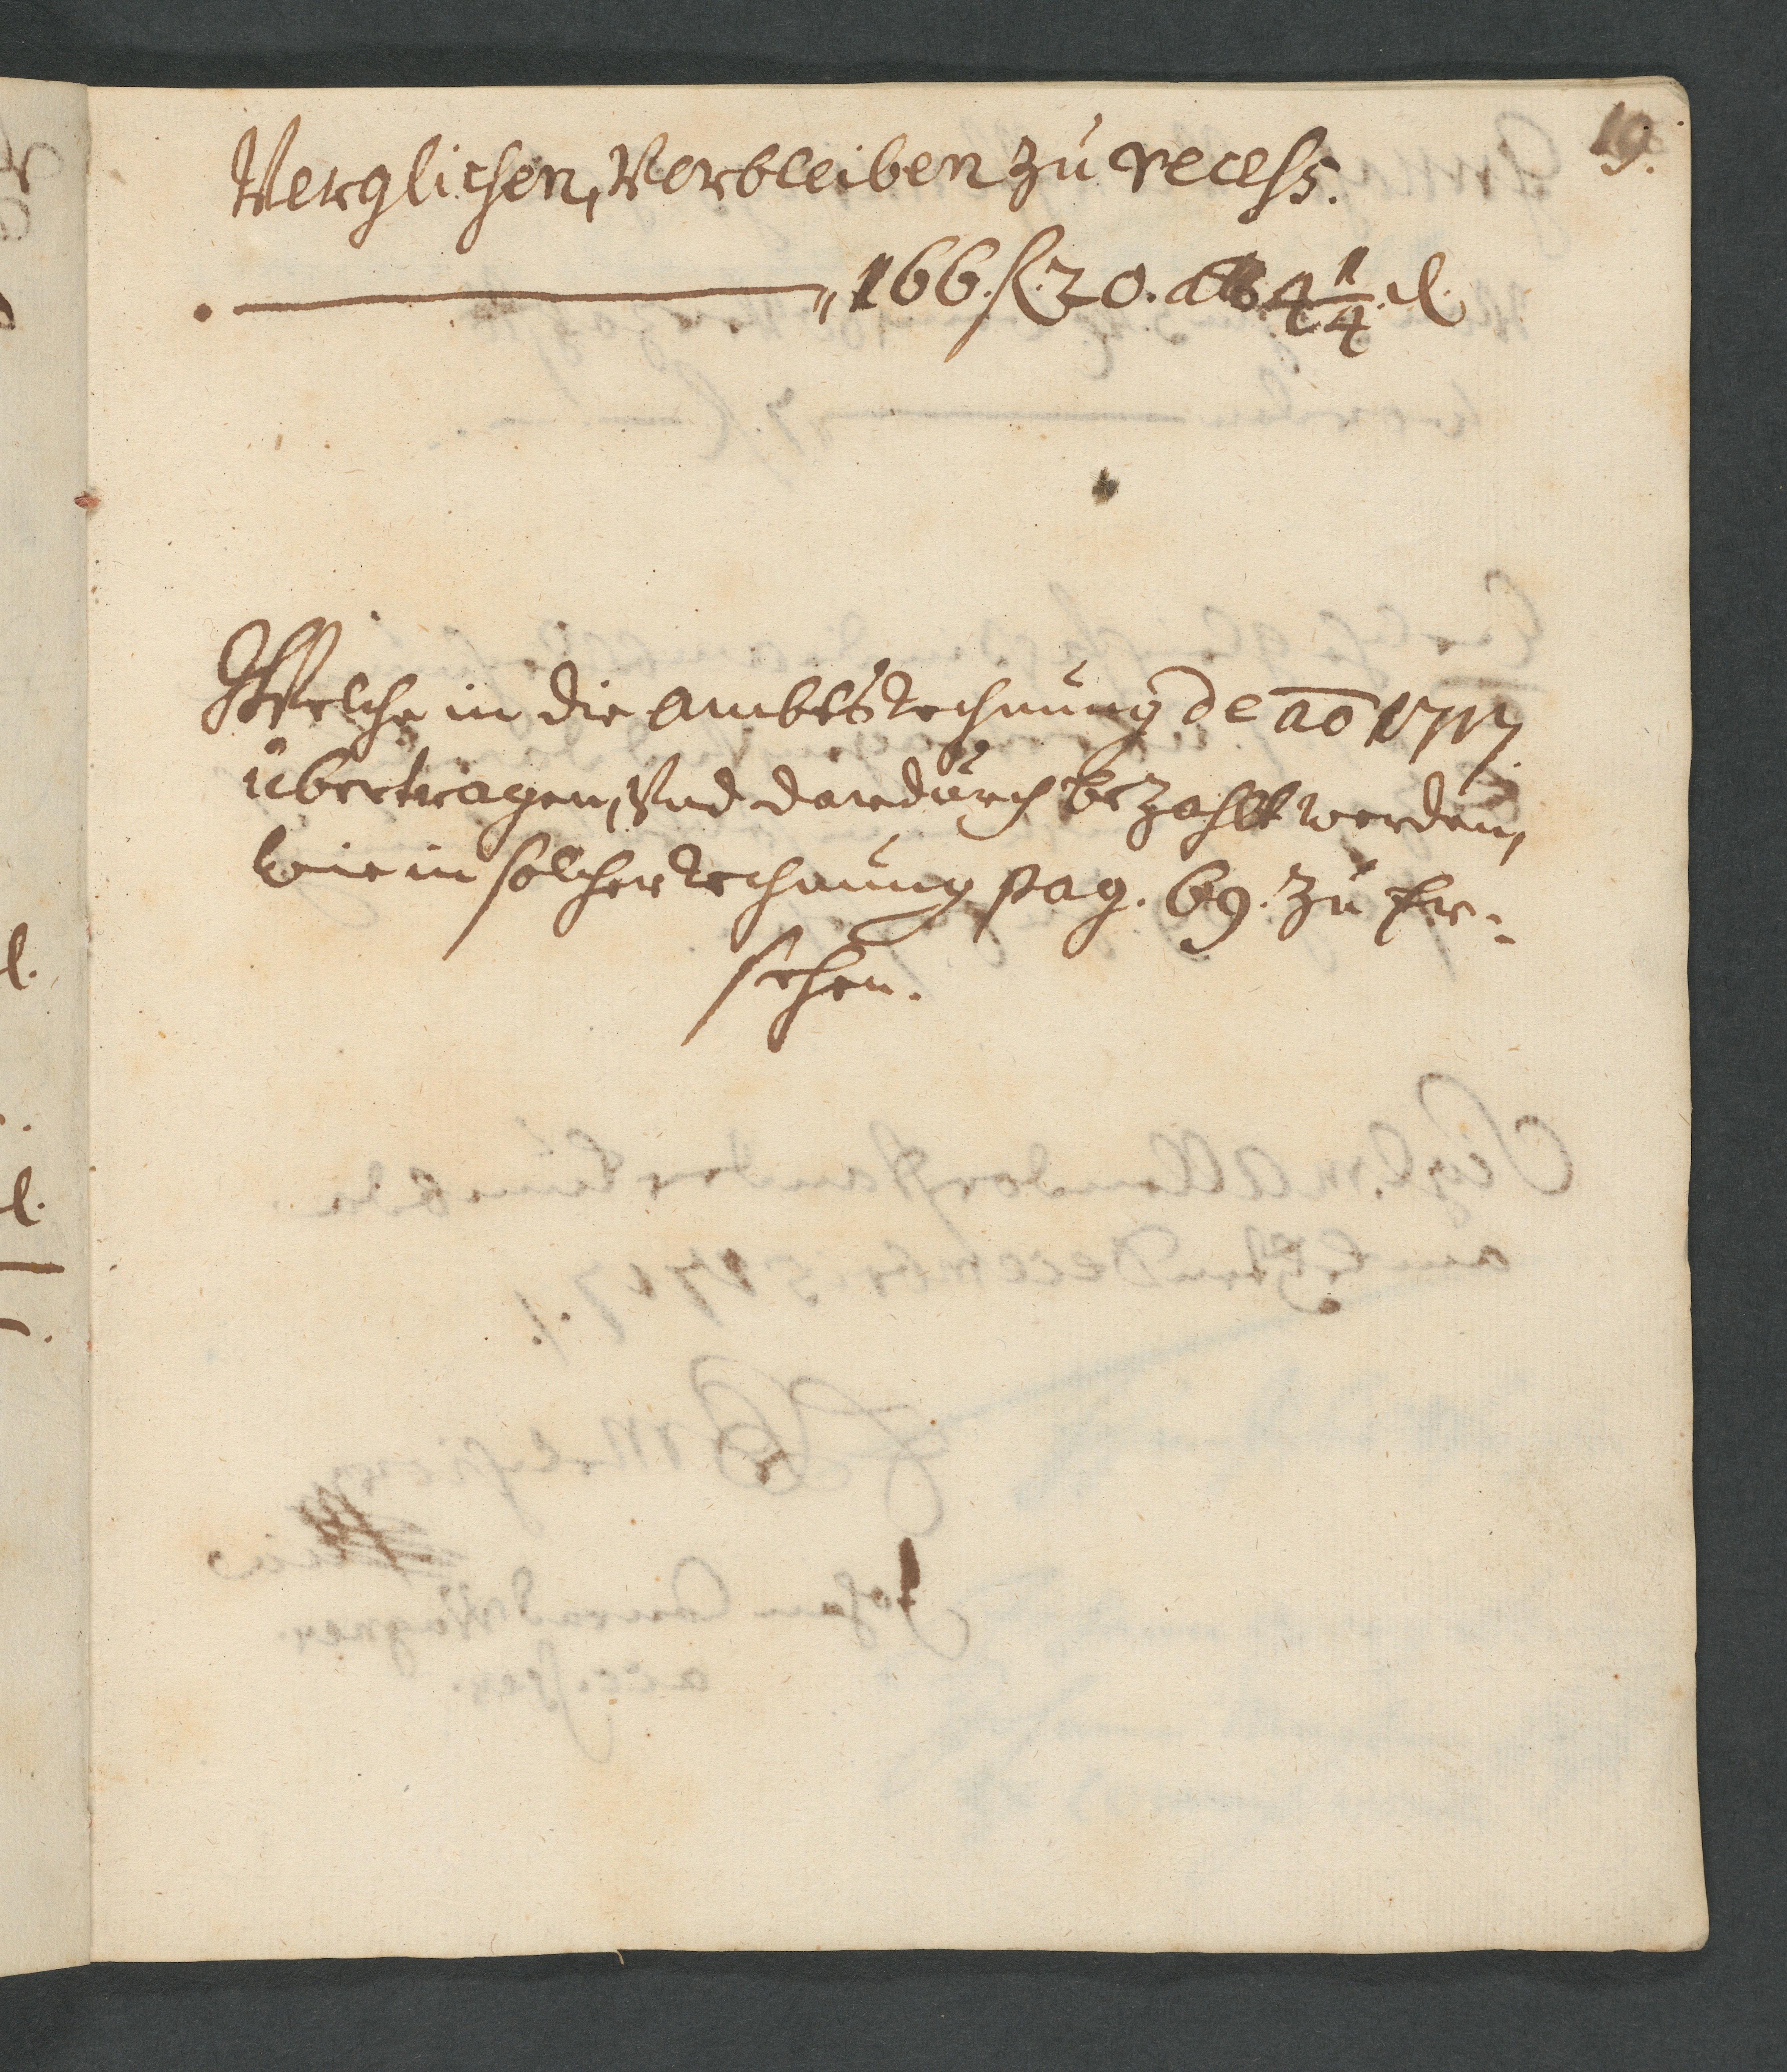 19.
Verglichen, Verbleiben zu recess.
166. fl. 20. alb 4 1/4 d.
Welche in die ambts Rechnung de ao 1717.
übertragen, Vnd dardurch bezahlt worden,
wie in solcher Rechnung pag. 69. zu Er-
sehen.